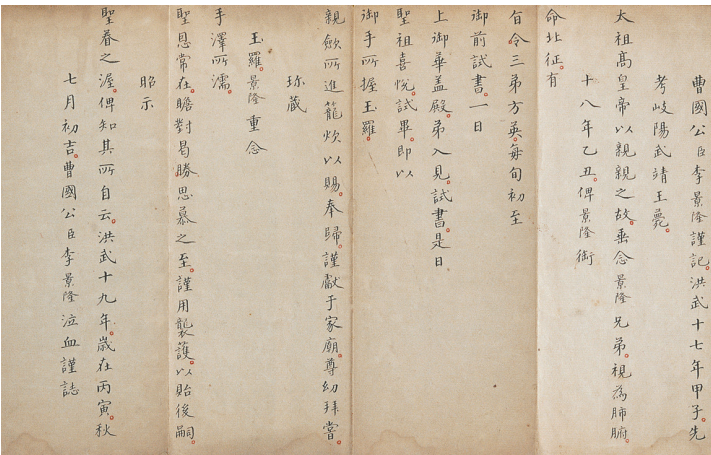 曹國公臣李景隆謹記。洪武十七年甲子。先
考岐陽武靖王薨。
太祖高皇帝以親親之故。垂念景隆兄弟。視為肺腑。
十八年乙丑。俾景隆銜
命北征。有
旨令三弟方英。每旬初至
御前試書。一日
上御華蓋殿。弟入見。試書。是日
聖祖喜悅。試畢。即以
御手所握玉羅。
親斂所進籠炊以賜。奉歸。謹獻于家廟。尊幼拜嘗。
珎藏
玉羅。景隆重念
手澤所濡。
聖恩常在。瞻對曷勝思慕之至。謹用襲護。以貽後嗣。
昭示
聖眷之渥。俾知其所自云。洪武十九年。歲在丙寅。秋
七月初吉。曹國公臣李景隆泣血謹誌